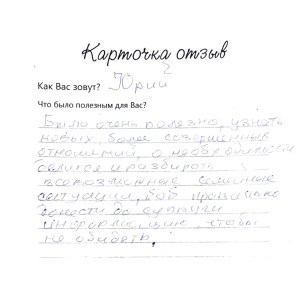 Карточка отзыв
Как Вас зовут? Юрий
Что было полезным для Вас?
Было очень полезно, узнать
новых, более совершенных
отношений, о необходимости
делится и разбирать
всевозможные семейные
ситуации, как правильно
донести до супруги
информацию, чтобы
не обидеть.